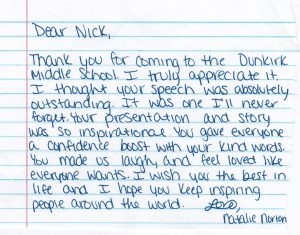 Dear Nick,
Thank you for coming to the Dunkirk
Middle School. I truly appreciate it.
I thought your speech was absolutely
outstanding. It was one I'll never
forget. Your presentation and story
was so inspirational. You gave everyone
a confidence boost with your kind words.
You made us laugh, and feel loved like
everyone wants. I wish you the best in
life and I hope you keep inspiring
people around the world. Love,
Natalie Norton